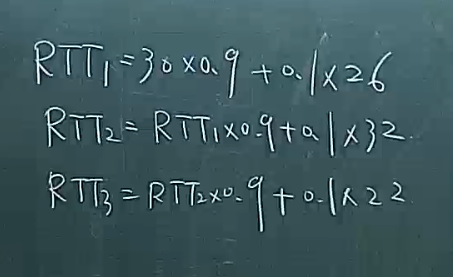 RTT₁=30×0.9+0.1×26
RTT₂=RTT₁×0.9+0.1×32.
RTT₃=RTT₂×0.9+0.1×22